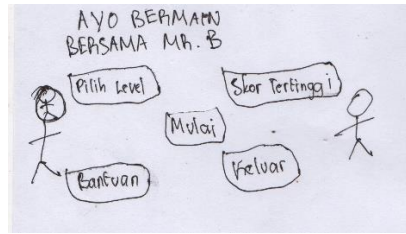 AYO BERMAIN
BERSAMA MR. B
Pilih Level
Skor Tertinggi
Mulai
Bantuan
Keluar